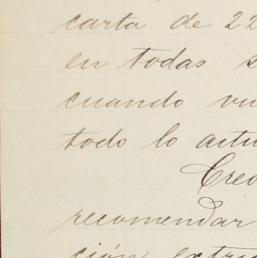 carta de 22
en todas s
cuando vu
todo lo actu
Creo
recomendar
ción extra